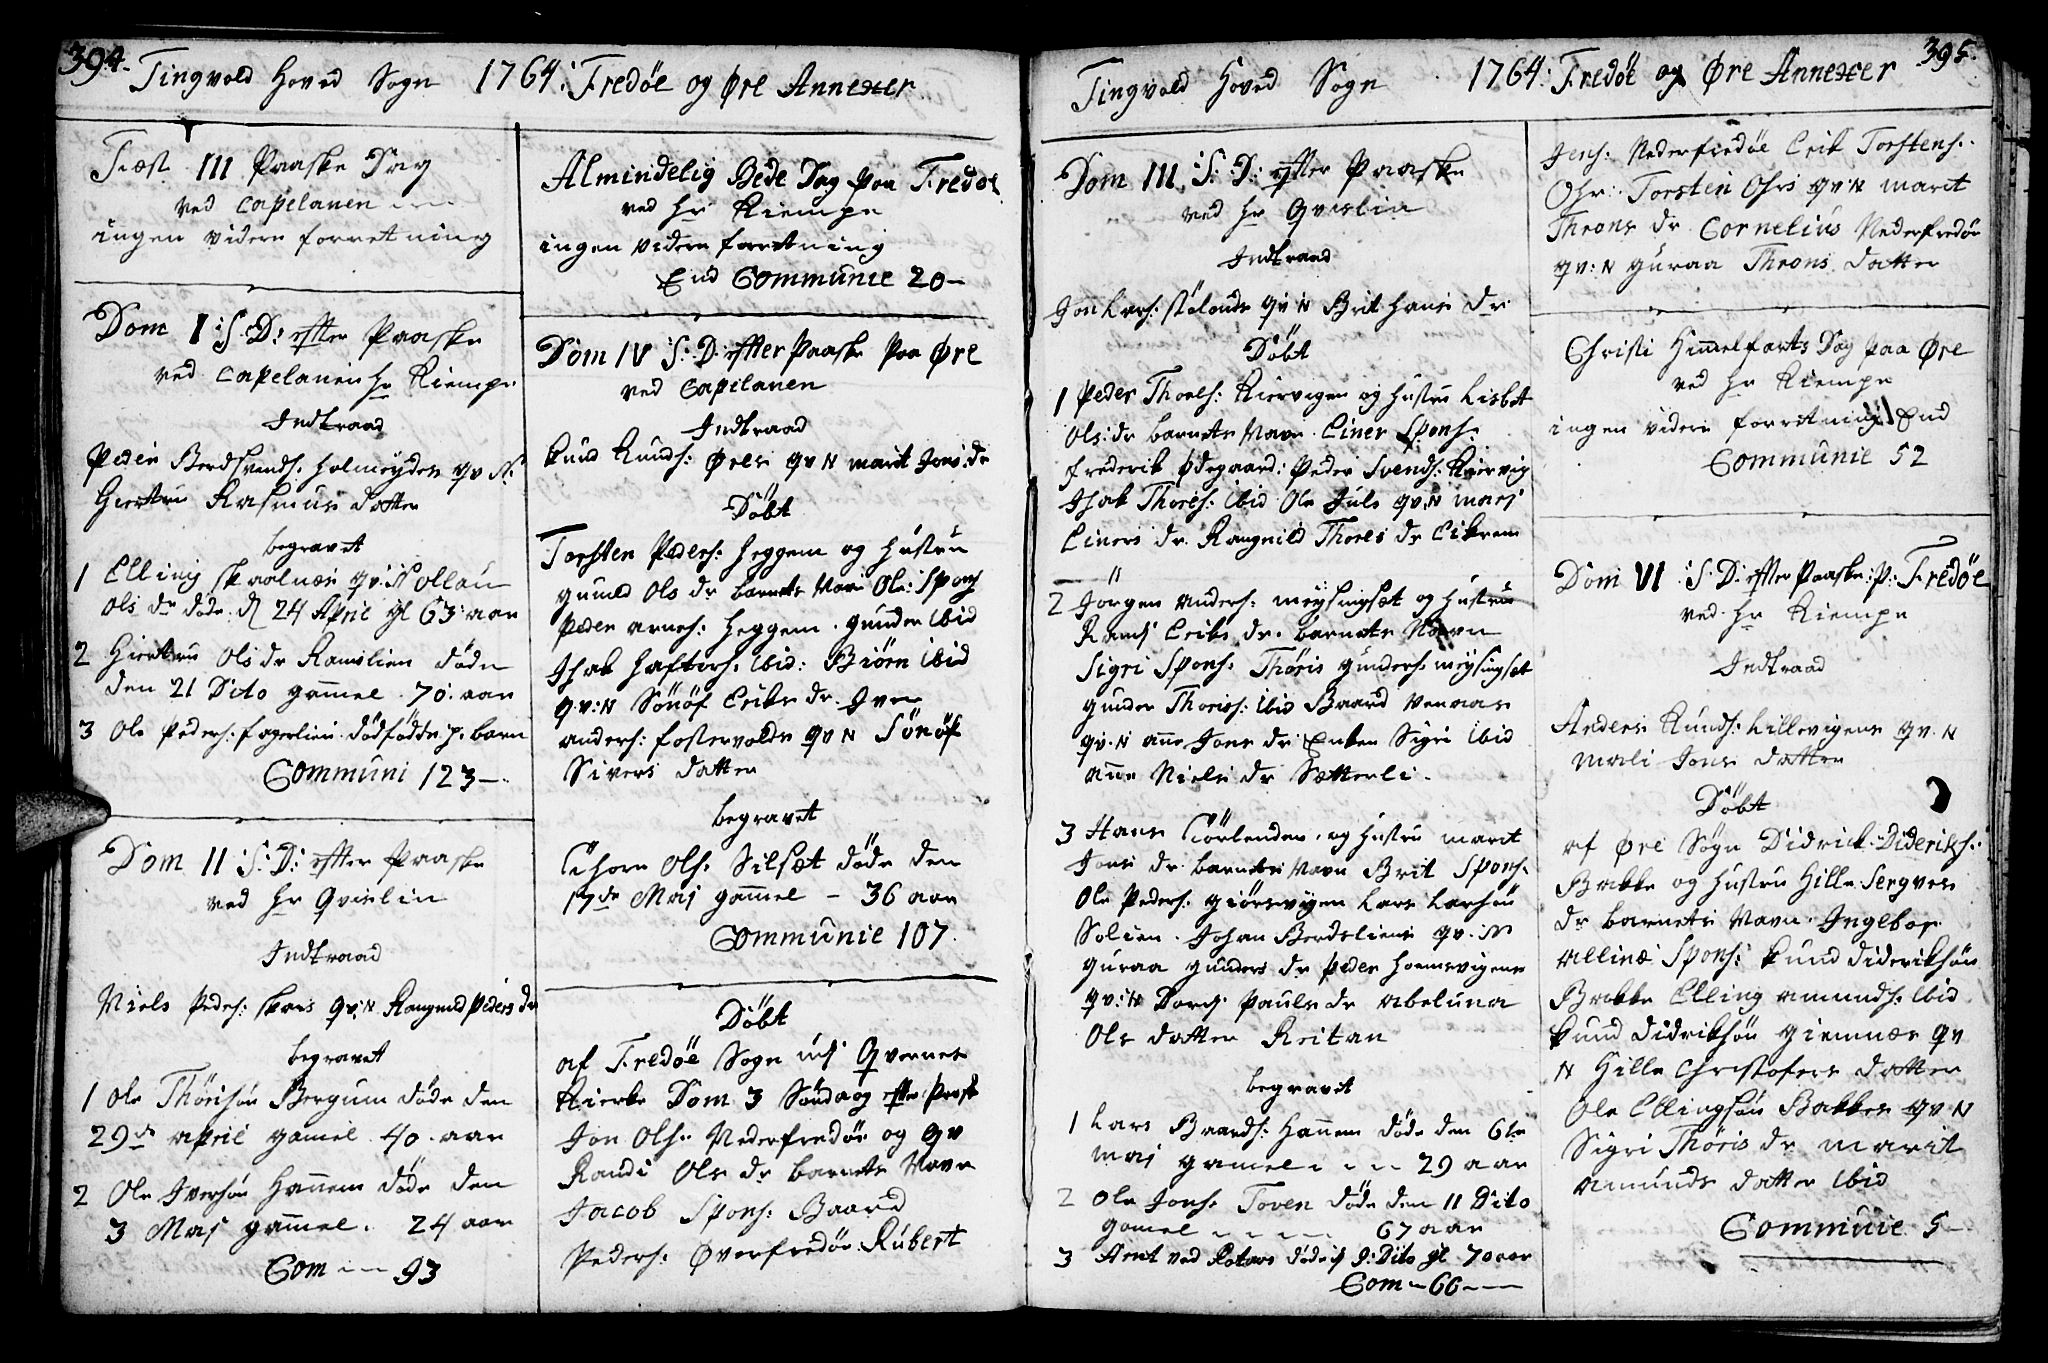 394.
Tingvold Hoved Sogn 1764: Fredøe og Øre Annexer
Fæst III Paaske Dag
ved Capelanen
ingen videre forretning
Dom I S: D: efter Paaske
ved Capelanen hr Kiempe
Indtraad
Peder Berdsvends: Holmeyden qv N:
Giertru Rasmus Datter
begravet
1 Elling skaalnæs qv: N ollau
Ols dr døde d 24 April gl 63: aar
2 Giertru Ols dr Ramslien døde
den 21 Dito gamel 70: aar
3 Ole Peders: fagerlien dødfødde p. barn
Communi 123
Dom II S: D: efter Paaske
ved hr Qvislin
Indtraad
Niels Peders: skars qv: N Rangnild Peders dr
begravet
1 Ole Thørisøn Bergum døde den
29de april gamel 40 aar
2 Ole Iversøn Hannem døde den
3 Maj gamel 24 aar
Com 93
Almindelig Bede Dag paa Fredøe
ved hr Kiempe
ingen videre forretning
End Communie 20
Dom IV S: D: efter Paaske paa Øre
ved Capelanen
Indtraad
Knud Knuds: Øres qv N marit Jons: dr
Døbt
Torsten Peders: Heggem og Hustru
gunild Ols dr barnets Navn Ole: Spons
Peder arnes: Heggem gunder ibid
Isak Hafters: ibid: Biørn ibid
qv: N Sønøf Eriks dr Iver
anders: fostervolds qv N Sønøf
Sivers datter
begravet
Thore Ols: Silsæt døde den
17de Maj gamel 36 aar
Communie 107
Døbt
af Fredøe Sogn udj Qvernes
Kierke Dom 3 Søndaag efter Paask
Jon Ols: Nederfredøe og qv
Randi Ols dr barnets Navn
Jacob Spons: Baard
Peders: Øverfredøe Rubert
395.
Tingvold Hoved Sogn 1764: Fredøe og Øre Annexer
Dom III S: D: efter Paaske
ved hr Qvislin
Indtraad
Jon Lars: stølands qv N Brit Hans dr
Døbt
1 Peder Thoels: Kiørvigen og Hustru Lisbet
Ols: dr barnets Navn Einer Spons:
Frederik Ødegaard: Peder Svends: Kiørvig
Isak Thores: ibid Ole Juls qv: N marj
Einers dr Rangnild Thores dr Eikrem
2 Jørgen anders: meysingsæt og Hustru
Randj Eriks dr: barnets Navn
Sigri Spons: Thøris gunders: meysingsæt
gunder Thoriss: ibid Baard Vennas
qv: N ane Jons dr Enken Sigri ibid
ane Niels dr Sætterli
3 Hans Tiørlenden og Hustru marit
Jons dr barnets Navn Brit Spons:
Ole Peders: giørsvigen Lars Larsøn
Solien Johan Berdsliens qv: N
guraa gunders dr Peder Hoemsvigens
qv: N Dordj Pauls dr abeluna
Ols datter Reitan
begravet
1 Lars Baards: Hannem døde den 6te
maj gamel 29 aar
2 Ole Jons: Toven døde den 11 Dito
gamel 67 aar
3 Arnt ved Kotars døde d 9: Dito gl 70 aar
Com 66
Jens: Nederfredøe Erik Torstens:
Ohr: Torsten Ohrs qv: N marit
Throns dr Cornelius Nederfredøe
qv: N guraa Throns datter
Christi Himelfarts Dag paa Øre
ved hr Kiempe
ingen videre forretning End
Communie 52
Dom VI S: D: efter Paaske: p: Fredøe
ved hr Kiempe
Indtraad
Anders Knuds: Lillevigens qv N
mali Jons datter
Døbt
af Øre Søgn Didrick Dideriks:
Bakke og Hustru Hille Sergves
dr barnets Navn Ingebor
allines Spons: Knud dideriksøn
Bakke Elling amunds: ibid
Knud didriksøn giemnæs qv
N Hille Christofers datter
Ole Ellingsøn Bakkes qv N
Sigri Thøris dr marit
amunds datter ibid
Commuie 5